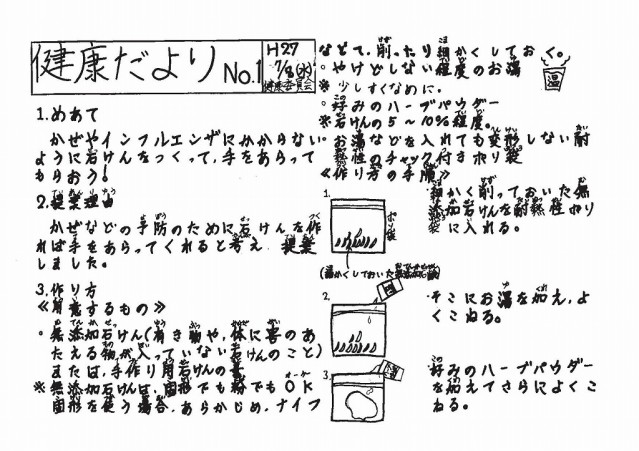 健康だより No.1
H27
7/8(水)
健康委員会
1.めあて
かぜやインフルエンザにかからない
ように石けんをつくって,手をあらって
もらおう!
2.提案理由
かぜなどの予防のために石けんを作
れば手をあらってくれると考え,提案
しました。
3.作り方
≪用意するもの≫
・無添加石けん(有き物や,体に害のあ
たえる物が入っていない石けんのこと)
または,手作り用石けんの素
※無添加石けんは,固形でも粉でもOK
固形を使う場合,あらかじめ,ナイフ
などで,削ったり細かくしておく。
・やけどしない程度のお湯
※少しすくなめに。
・好みのハーブパウダー
※石けんの5~10%程度。
・お湯などを入れても変形しない耐
熱性のチャック付きポリ袋
≪作り方の手順≫
1.
ポリ袋
細かく削っておいた無
添加石けんを耐熱性ポリ
袋に入れる。
2.
そこにお湯を加え,よ
くこねる。
3.
好みのハーブパウダー
を加えてさらによくこ
ねる。